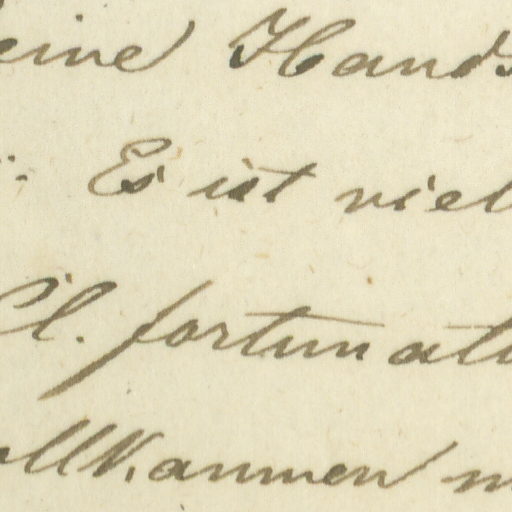 eine Hands
Es ist viel
Cl. fortunat
ollkommen